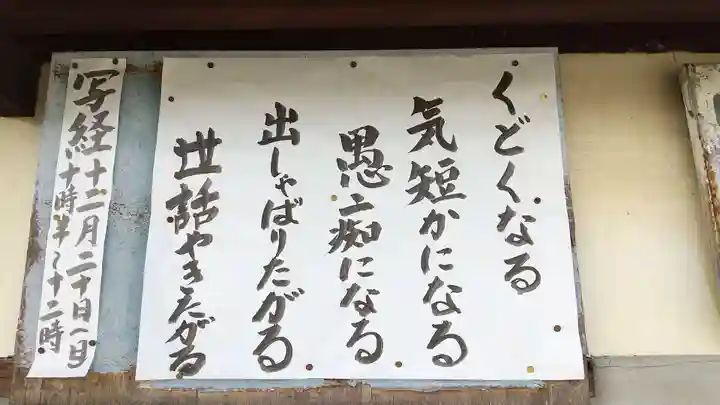 くどくなる
気短かになる
愚痴になる
出しゃばりたがる
世話やきたがる
写経 十二月二十日(日)
十時半〜十二時